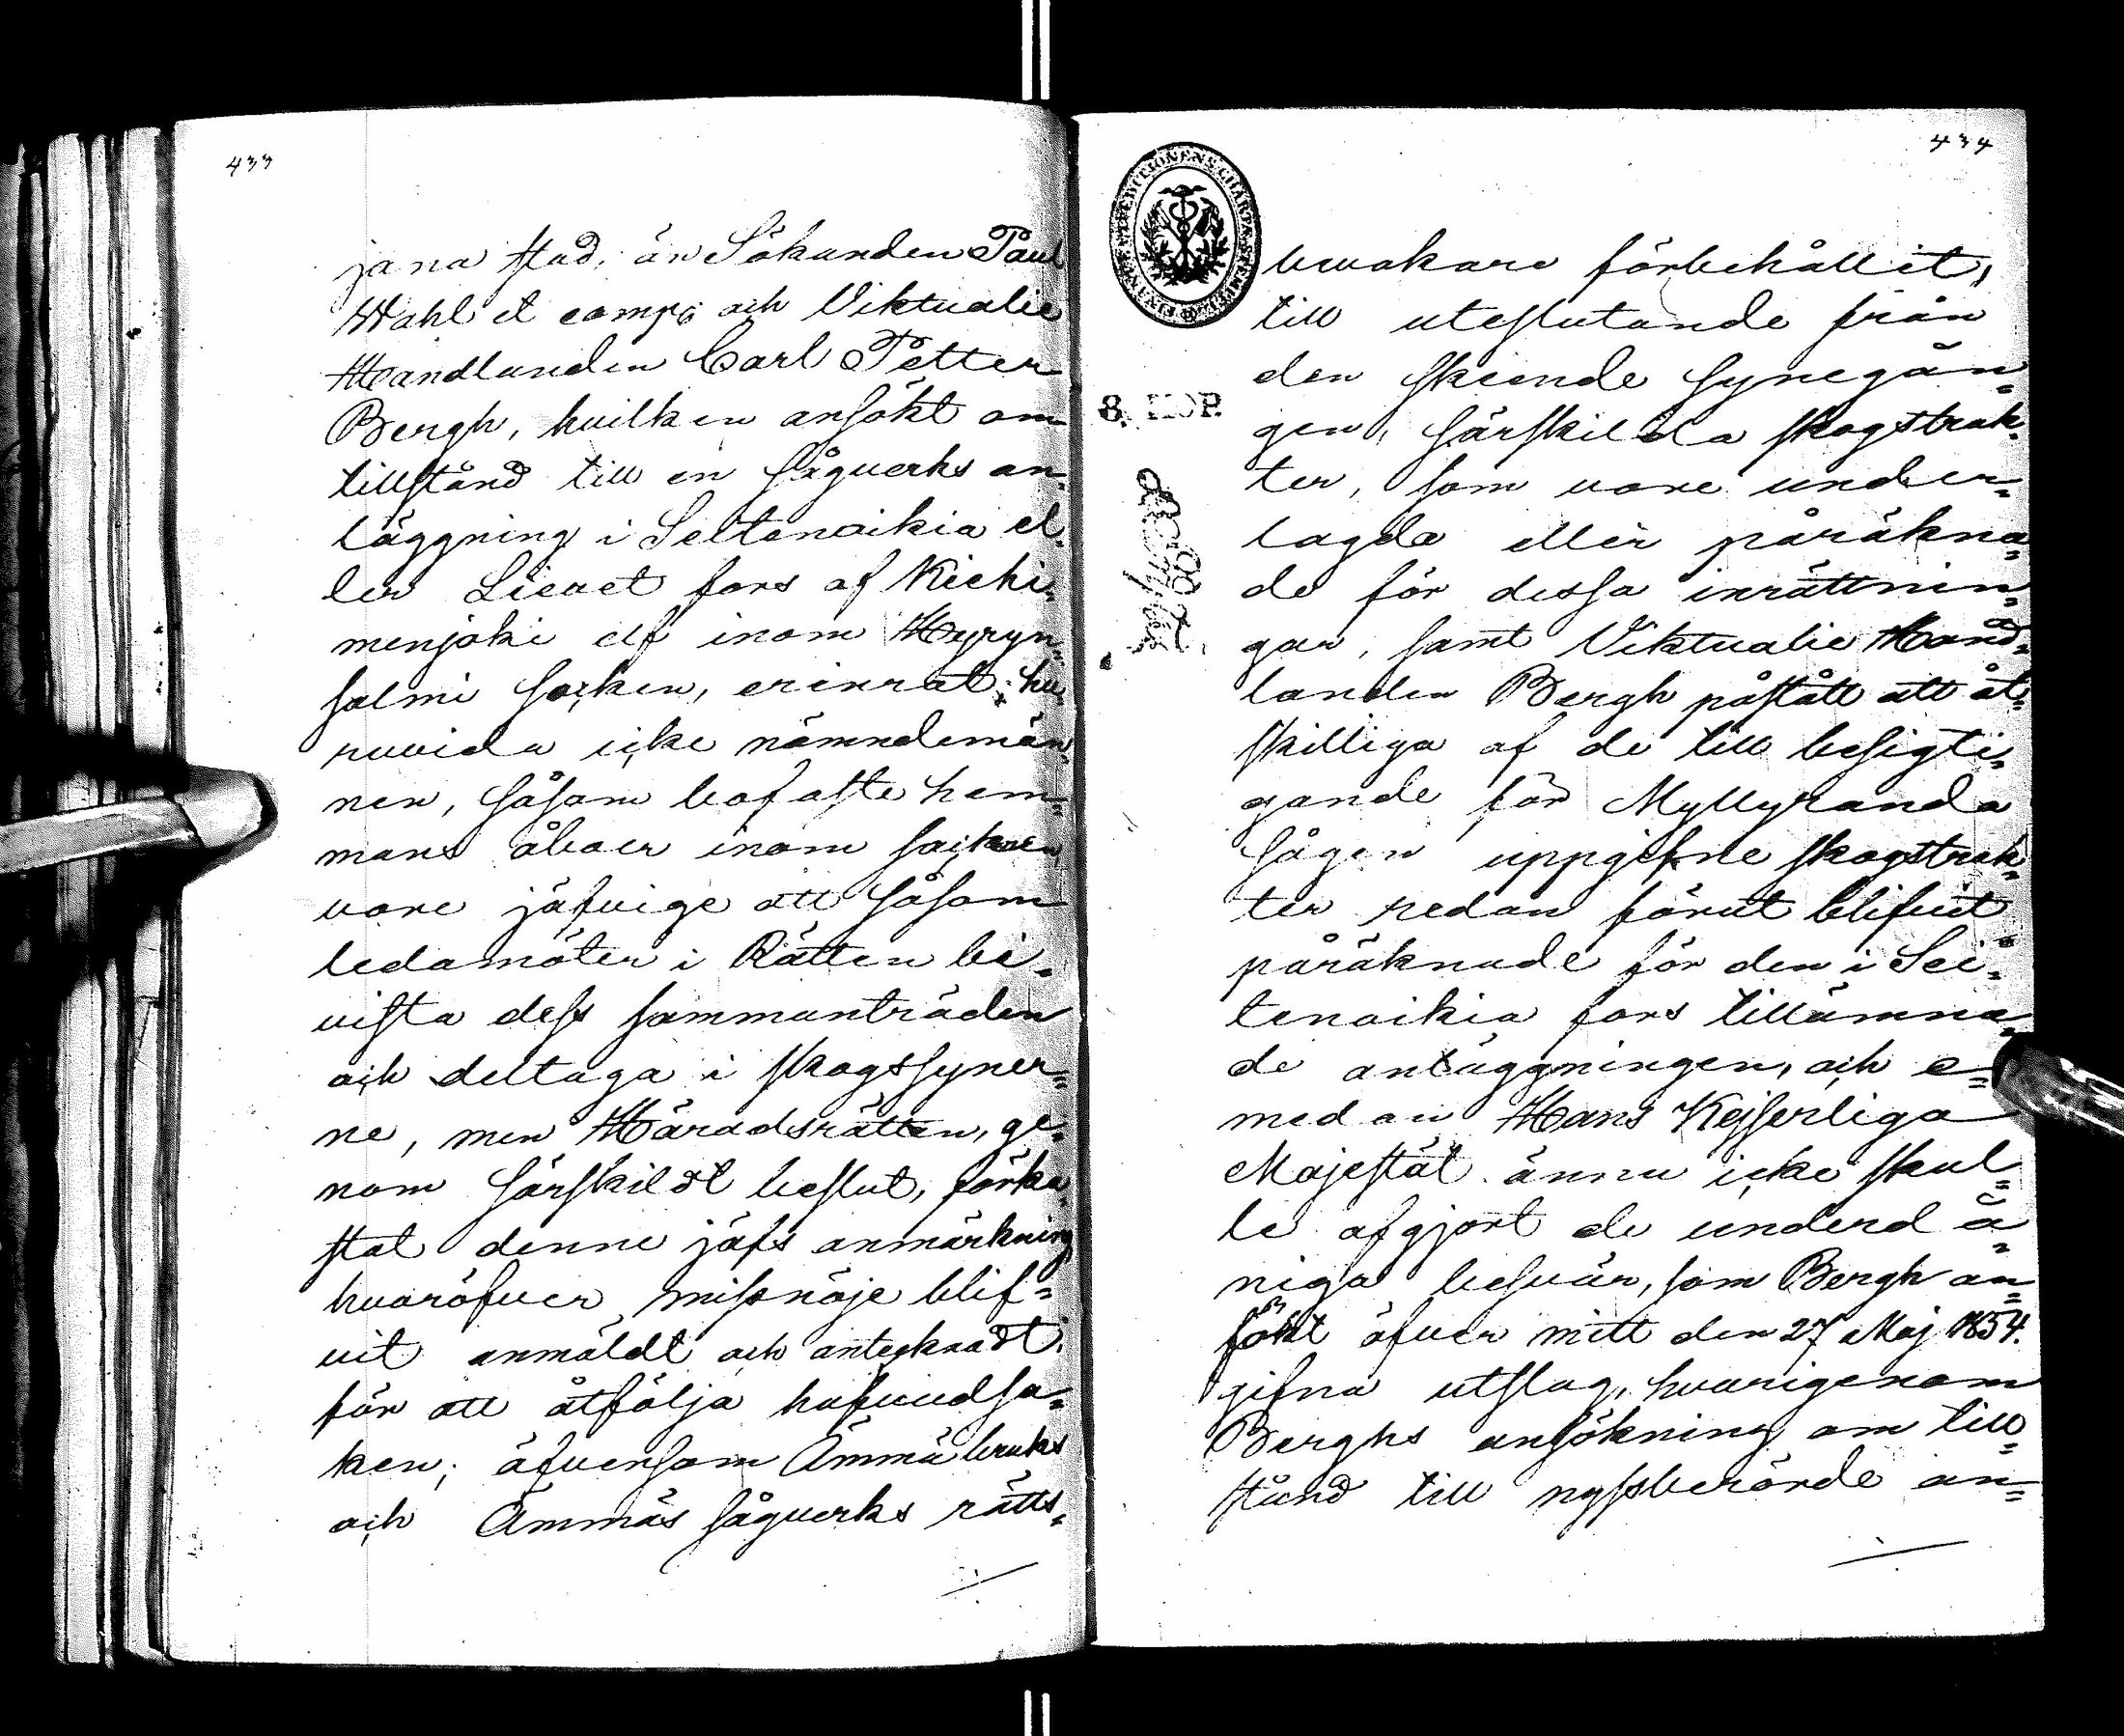 433
jana stad, än Sökanden Paul
Wahl et comp: och Viktualie
Handlanden Carl Petter
Bergh, hvilken ansökt om
tillstånd till en sågverks an=
läggning i Seitenaikia el=
ler Lieret fors af Kiehi=
menjoki elf inom Hyryn=
salmi socken, erinrat: hu=
ruvida icke nämndemän=
nen, såsom bofaste hem=
mans åboer inom socknen
vore jäfvige att såsom
ledamöter i Rätten bi=
vista dess sammanträden
och deltaga i skogssyner=
ne, men Häradsrätten, ge=
nom särskildt beslut, förka=
stat denne jäfs anmärkning
hvaröfver missnöje blif=
vit anmäldt och antecknadt,
för att åtfölja hufvudsa=
ken; äfvensom Ämmä bruks
och Ämmäs sågverks rätts=
434
8. KOP.
bevakare förbehållit,
till uteslutande från
den skeende synegån=
gen, särskilda skogstrak=
ter, som vore under=
lagda eller påräkna=
de för dessa inrättnin=
gar, samt Viktualie Hand=
landen Bergh påstått att åt=
skilliga af de till besigti=
gande för Myllyranda
sågen uppgifne skogstrak=
ter redan förut blifvit
påräknade för den i Sei=
tenaikia fors tillämna=
de anläggningen, och e=
medan Hans Kejserliga
Majestät ännu icke skul=
le afgjort de underdå=
niga besvär, som Bergh an=
fört öfver mitt den 27 Maj 1854.
gifna utslag, hvarigenom
Berghs ansökning om till=
stånd till nyssberörde an=